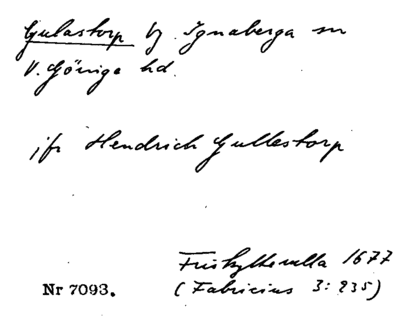 Gulastorp by Ignaberga sn
V. Göinge hd.
jfr Hendrich Gullestorp
Friskytterulla 1677
Nr 7093. (Fabricius 3: 235)